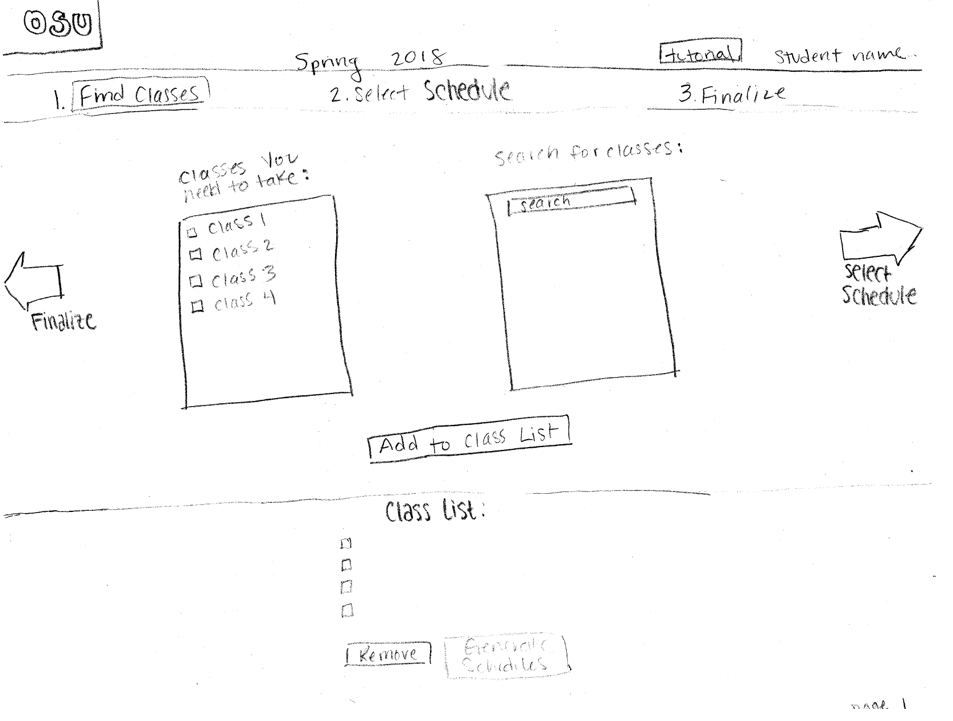 OSU
Spring 2018
tutorial
Student name..
1. Find Classes
2. Select Schedule
3. Finalize
Classes You
need to take:
Class 1
Class 2
Class 3
Class 4
Search for classes:
search
Finalize
Select
Schedule
Add to Class List
Class List:
Remove
Generate
Schedules
page 1